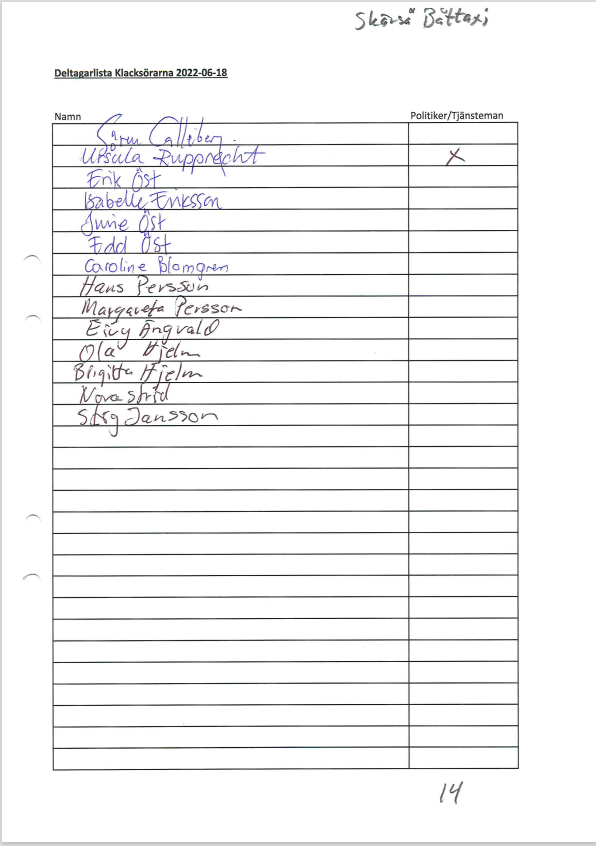 Skärså Båttaxi
Deltagarlista Klacksörarna 2022-06-18
Namn Politiker/Tjänsteman
Ursula Rupprecht X
Erik Öst
Isabelle Eriksson
June Öst
Edd Öst
Caroline Blomgren
Hans Persson
Margareta Persson
Ängvald
Ola Hjelm
Birgitta Hjelm
Nova Strid
Stig Jansson
14